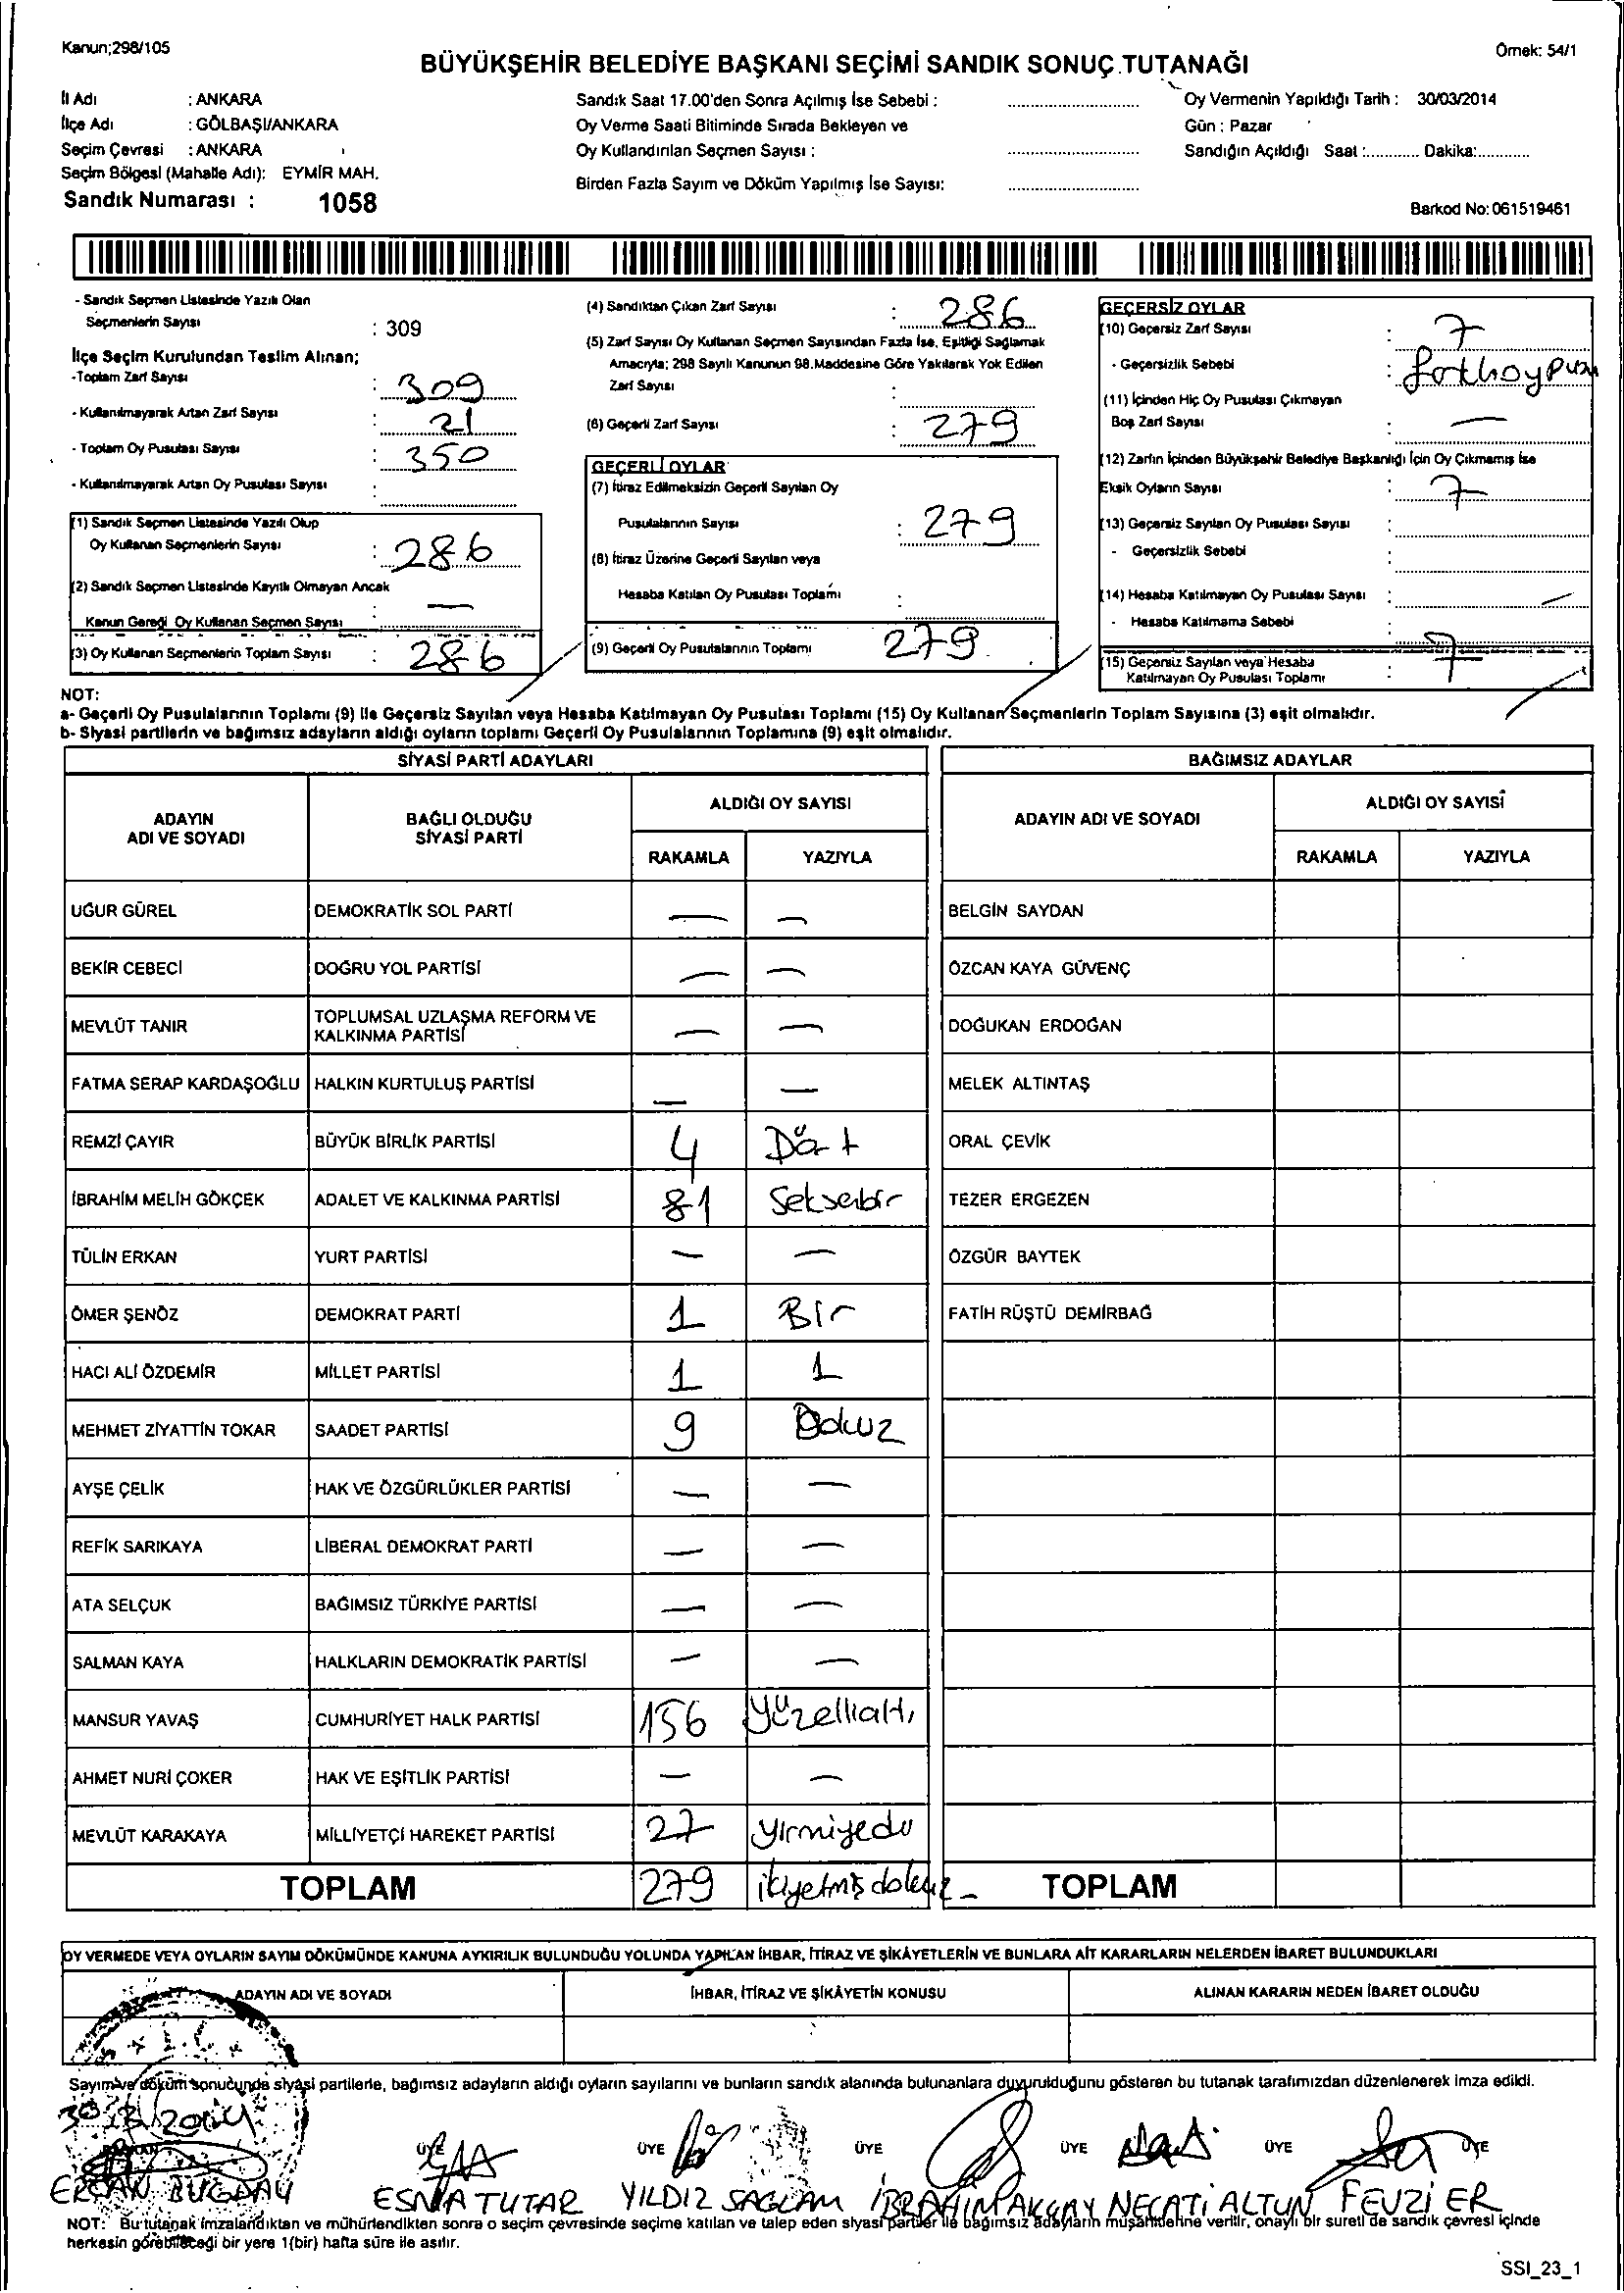 Kanun;298/105
Örnek: 54/1
BÜYÜKŞEHİR BELEDİYE BAŞKANI SEÇİMİ SANDIK SONUÇ TUTANAĞI
İl Adı : ANKARA
İlçe Adı : GÖLBAŞI/ANKARA
Seçim Çevresi : ANKARA
Seçim Bölgesi (Mahalle Adı): EYMİR MAH.
Sandık Numarası : 1058
Sandık Saat 17.00'den Sonra Açılmış İse Sebebi :
Oy Verme Saati Bitiminde Sırada Bekleyen ve
Oy Kullandırılan Seçmen Sayısı :
Birden Fazla Sayım ve Döküm Yapılmış İse Sayısı:
Oy Vermenin Yapıldığı Tarih : 30/03/2014
Gün : Pazar
Sandığın Açıldığı Saat :............ Dakika:............
Barkod No: 061519461
- Sandık Seçmen Listesinde Yazılı Olan
Seçmenlerin Sayısı : 309
İlçe Seçim Kurulundan Teslim Alınan;
-Toplam Zarf Sayısı : 309
- Kullanılmayarak Artan Zarf Sayısı : 21
- Toplam Oy Pusulası Sayısı : 350
- Kullanılmayarak Artan Oy Pusulası Sayısı :
(1) Sandık Seçmen Listesinde Yazılı Olup
Oy Kullanan Seçmenlerin Sayısı : 286
(2) Sandık Seçmen Listesinde Kayıtlı Olmayan Ancak
Kanun Gereği Oy Kullanan Seçmen Sayısı : —
(3) Oy Kullanan Seçmenlerin Toplam Sayısı : 286
(4) Sandıktan Çıkan Zarf Sayısı : 286
(5) Zarf Sayısı Oy Kullanan Seçmen Sayısından Fazla İse, Eşitliği Sağlamak
Amacıyla; 298 Sayılı Kanunun 98.Maddesine Göre Yakılarak Yok Edilen
Zarf Sayısı :
(6) Geçerli Zarf Sayısı : 279
GEÇERLİ OYLAR
(7) İtiraz Edilmeksizin Geçerli Sayılan Oy
Pusulalarının Sayısı : 279
(8) İtiraz Üzerine Geçerli Sayılan veya
Hesaba Katılan Oy Pusulası Toplamı :
(9) Geçerli Oy Pusulalarının Toplamı 279
GEÇERSİZ OYLAR
(10) Geçersiz Zarf Sayısı : 7
- Geçersizlik Sebebi :
(11) İçinden Hiç Oy Pusulası Çıkmayan
Boş Zarf Sayısı : —
(12) Zarfın İçinden Büyükşehir Belediye Başkanlığı İçin Oy Çıkmamış İse
Eksik Oyların Sayısı : 7
(13) Geçersiz Sayılan Oy Pusulası Sayısı :
- Geçersizlik Sebebi :
(14) Hesaba Katılmayan Oy Pusulası Sayısı : —
- Hesaba Katılmama Sebebi :
(15) Geçersiz Sayılan veya Hesaba
Katılmayan Oy Pusulası Toplamı : 7
NOT:
a- Geçerli Oy Pusulalarının Toplamı (9) ile Geçersiz Sayılan veya Hesaba Katılmayan Oy Pusulası Toplamı (15) Oy Kullanan Seçmenlerin Toplam Sayısına (3) eşit olmalıdır.
b- Siyasi partilerin ve bağımsız adayların aldığı oyların toplamı Geçerli Oy Pusulalarının Toplamına (9) eşit olmalıdır.
SİYASİ PARTİ ADAYLARI
ADAYIN
ADI VE SOYADI
BAĞLI OLDUĞU
SİYASİ PARTİ
ALDIĞI OY SAYISI
RAKAMLA YAZIYLA
UĞUR GÜREL DEMOKRATİK SOL PARTİ — —
BEKİR CEBECİ DOĞRU YOL PARTİSİ — —
MEVLÜT TANIR TOPLUMSAL UZLAŞMA REFORM VE
KALKINMA PARTİSİ — —
FATMA SERAP KARDAŞOĞLU HALKIN KURTULUŞ PARTİSİ — —
REMZİ ÇAYIR BÜYÜK BİRLİK PARTİSİ 4 Dört
İBRAHİM MELİH GÖKÇEK ADALET VE KALKINMA PARTİSİ 81 Seksenbir
TÜLİN ERKAN YURT PARTİSİ — —
ÖMER ŞENÖZ DEMOKRAT PARTİ 1 Bir
HACI ALİ ÖZDEMİR MİLLET PARTİSİ 1 1
MEHMET ZİYATTİN TOKAR SAADET PARTİSİ 9 Dokuz
AYŞE ÇELİK HAK VE ÖZGÜRLÜKLER PARTİSİ — —
REFİK SARIKAYA LİBERAL DEMOKRAT PARTİ — —
ATA SELÇUK BAĞIMSIZ TÜRKİYE PARTİSİ — —
SALMAN KAYA HALKLARIN DEMOKRATİK PARTİSİ — —
MANSUR YAVAŞ CUMHURİYET HALK PARTİSİ 156 Yüzellialtı
AHMET NURİ ÇOKER HAK VE EŞİTLİK PARTİSİ — —
MEVLÜT KARAKAYA MİLLİYETÇİ HAREKET PARTİSİ 27 Yirmiyedi
TOPLAM 279 ikiyetmişdokuz
BAĞIMSIZ ADAYLAR
ADAYIN ADI VE SOYADI
ALDIĞI OY SAYISI
RAKAMLA YAZIYLA
BELGİN SAYDAN
ÖZCAN KAYA GÜVENÇ
DOĞUKAN ERDOĞAN
MELEK ALTINTAŞ
ORAL ÇEVİK
TEZER ERGEZEN
ÖZGÜR BAYTEK
FATİH RÜŞTÜ DEMİRBAĞ
TOPLAM
OY VERMEDE VEYA OYLARIN SAYIM DÖKÜMÜNDE KANUNA AYKIRILIK BULUNDUĞU YOLUNDA YAPILAN İHBAR, İTİRAZ VE ŞİKÂYETLERİN VE BUNLARA AİT KARARLARIN NELERDEN İBARET BULUNDUKLARI
ADAYIN ADI VE SOYADI
İHBAR, İTİRAZ VE ŞİKÂYETİN KONUSU
ALINAN KARARIN NEDEN İBARET OLDUĞU
Sayım ve döküm sonucunda siyasi partilerle, bağımsız adayların aldığı oyların sayılarını ve bunların sandık alanında bulunanlara duyurulduğunu gösteren bu tutanak tarafımızdan düzenlenerek imza edildi.
BAŞKAN ÜYE ÜYE ÜYE ÜYE ÜYE ÜYE
ERCAN BUĞDAY ESMA TUTAR YILDIZ SAĞLAM İBRAHİM AKÇAY NECATİ ALTUN FEVZİ ER
NOT: Bu tutanak imzalandıktan ve mühürlendikten sonra o seçim çevresinde seçime katılan ve talep eden siyasi partiler ile bağımsız adayların müşahitlerine verilir, onaylı bir sureti de sandık çevresi içinde
herkesin görebileceği bir yere 1(bir) hafta süre ile asılır.
SSI_23_1